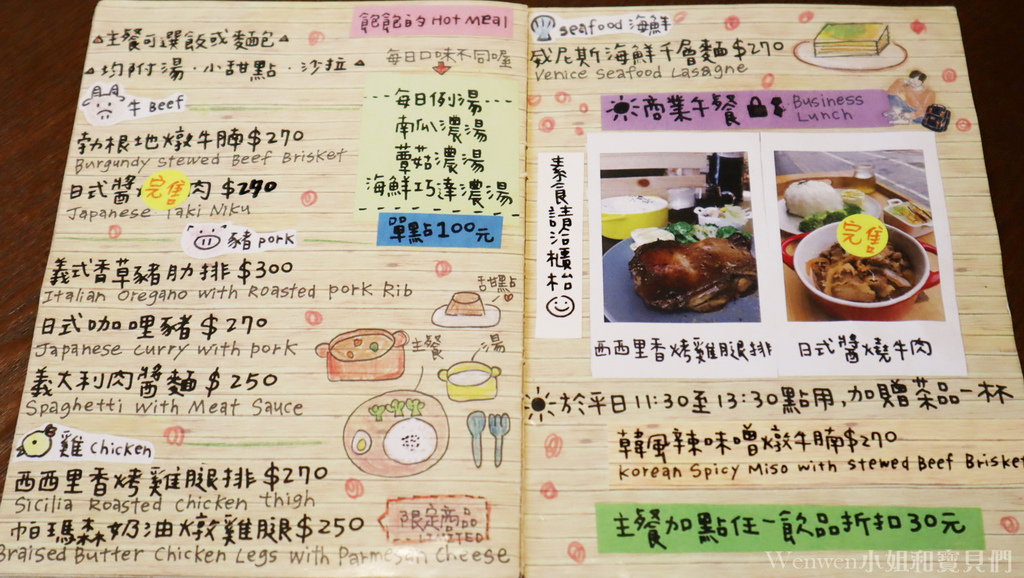 飽飽的Hot Meal
△主餐可選飯或麵包△
△均附湯·小甜點·沙拉△
每日口味不同喔
牛 Beef
勃根地燉牛腩$270
Burgundy stewed Beef Brisket
日式醬 肉 $270
完售
Japanese Yaki Niku
豬 pork
義式香草豬肋排$300
Italian Oregano with Roasted pork Rib
日式咖哩豬$270
Japanese curry with pork
義大利肉醬麵$250
Spaghetti with Meat Sauce
雞 chicken
西西里香烤雞腿排$270
Sicilia Roasted chicken thigh
帕瑪森奶油燉雞腿$250
Braised Butter Chicken Legs with Parmesan Cheese
每日例湯
南瓜濃湯
蘑菇濃湯
海鮮巧達濃湯
單點100元
甜點
主餐
湯
限定商品
LIMITED
seafood 海鮮
威尼斯海鮮千層麵$270
Venice Seafood Lasagne
商業午餐
Business
Lunch
素食請洽櫃枱
完售
西西里香烤雞腿排
日式醬燒牛肉
於平日11:30至13:30點用,加贈茶品一杯
韓風辣味噌燉牛腩$270
Korean Spicy Miso with stewed Beef Brisket
主餐加點任一飲品折扣30元
Wenwen小姐和寶貝們